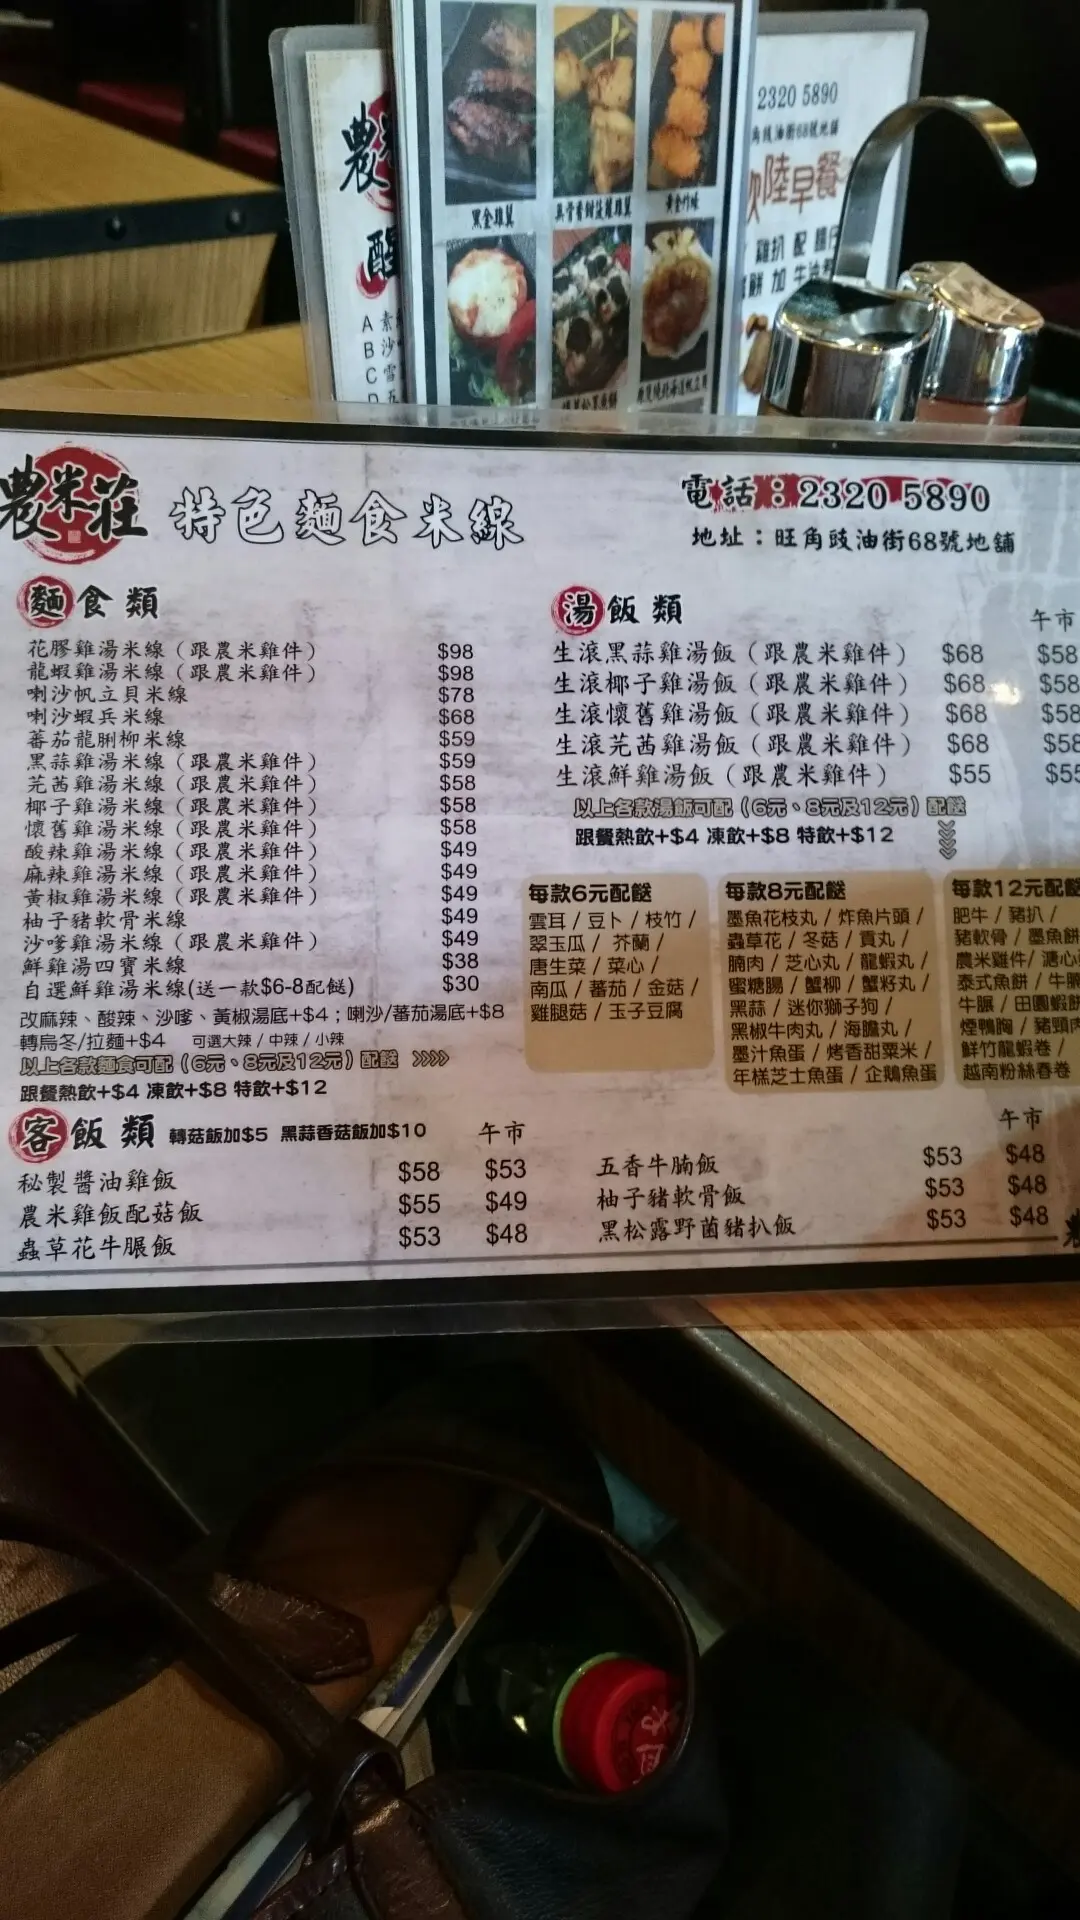 2320 5890
角豉油街68號地舖
陸早餐
雞扒 配
餅 加 牛油
黑金雞翼
黃金竹味
農
醒
A 素
B 沙
C 雪
D 五
農米莊
特色麵食米線
電話：2320 5890
地址：旺角豉油街68號地舖
麵食類
花膠雞湯米線（跟農米雞件） $98
龍蝦雞湯米線（跟農米雞件） $98
喇沙帆立貝米線 $78
喇沙蝦兵米線 $68
蕃茄龍脷柳米線 $59
黑蒜雞湯米線（跟農米雞件） $59
芫茜雞湯米線（跟農米雞件） $58
椰子雞湯米線（跟農米雞件） $58
懷舊雞湯米線（跟農米雞件） $58
酸辣雞湯米線（跟農米雞件） $49
麻辣雞湯米線（跟農米雞件） $49
黃椒雞湯米線（跟農米雞件） $49
柚子豬軟骨米線 $49
沙嗲雞湯米線（跟農米雞件） $49
鮮雞湯四寶米線 $38
自選鮮雞湯米線(送一款$6-8配餸) $30
改麻辣、酸辣、沙嗲、黃椒湯底+$4；喇沙/蕃茄湯底+$8
轉烏冬/拉麵+$4 可選大辣 / 中辣 / 小辣
以上各款麵食可配（6元、8元及12元）配餸 >>>>
跟餐熱飲+$4 凍飲+$8 特飲+$12
湯飯類 午市
生滾黑蒜雞湯飯（跟農米雞件） $68 $58
生滾椰子雞湯飯（跟農米雞件） $68 $58
生滾懷舊雞湯飯（跟農米雞件） $68 $58
生滾芫茜雞湯飯（跟農米雞件） $68 $58
生滾鮮雞湯飯（跟農米雞件） $55 $55
以上各款湯飯可配（6元、8元及12元）配餸
跟餐熱飲+$4 凍飲+$8 特飲+$12
每款6元配餸
雲耳 / 豆卜 / 枝竹 /
翠玉瓜 / 芥蘭 /
唐生菜 / 菜心 /
南瓜 / 蕃茄 / 金菇 /
雞腿菇 / 玉子豆腐
每款8元配餸
墨魚花枝丸 / 炸魚片頭 /
蟲草花 / 冬菇 / 貢丸 /
腩肉 / 芝心丸 / 龍蝦丸 /
蜜糖腸 / 蟹柳 / 蟹籽丸 /
黑蒜 / 迷你獅子狗 /
黑椒牛肉丸 / 海膽丸 /
墨汁魚蛋 / 烤香甜粟米 /
年糕芝士魚蛋 / 企鵝魚蛋
每款12元配餸
肥牛 / 豬扒 /
豬軟骨 / 墨魚餅
農米雞件 / 溏心
泰式魚餅 / 牛腩
牛𦟌 / 田園蝦餅
煙鴨胸 / 豬頸肉
鮮竹龍蝦卷 /
越南粉絲春卷
客飯類 轉菇飯加$5 黑蒜香菇飯加$10 午市
秘製醬油雞飯 $58 $53
農米雞飯配菇飯 $55 $49
蟲草花牛𦟌飯 $53 $48
午市
五香牛腩飯 $53 $48
柚子豬軟骨飯 $53 $48
黑松露野菌豬扒飯 $53 $48